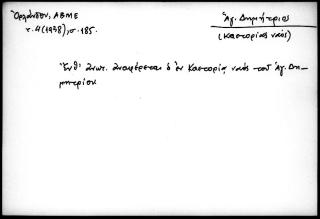 Ὀρλάνδου, ΑΒΜΕ
τ. 4 (1938), σ. 185.
Ἅγ. Δημήτριος
(Καστοριᾶς ναός)
Ἐνθ' ἀνωτ. ἀναφέρεται ὁ ἐν Καστορίᾳ ναός τοῦ Ἁγ. Δη-
μητρίου